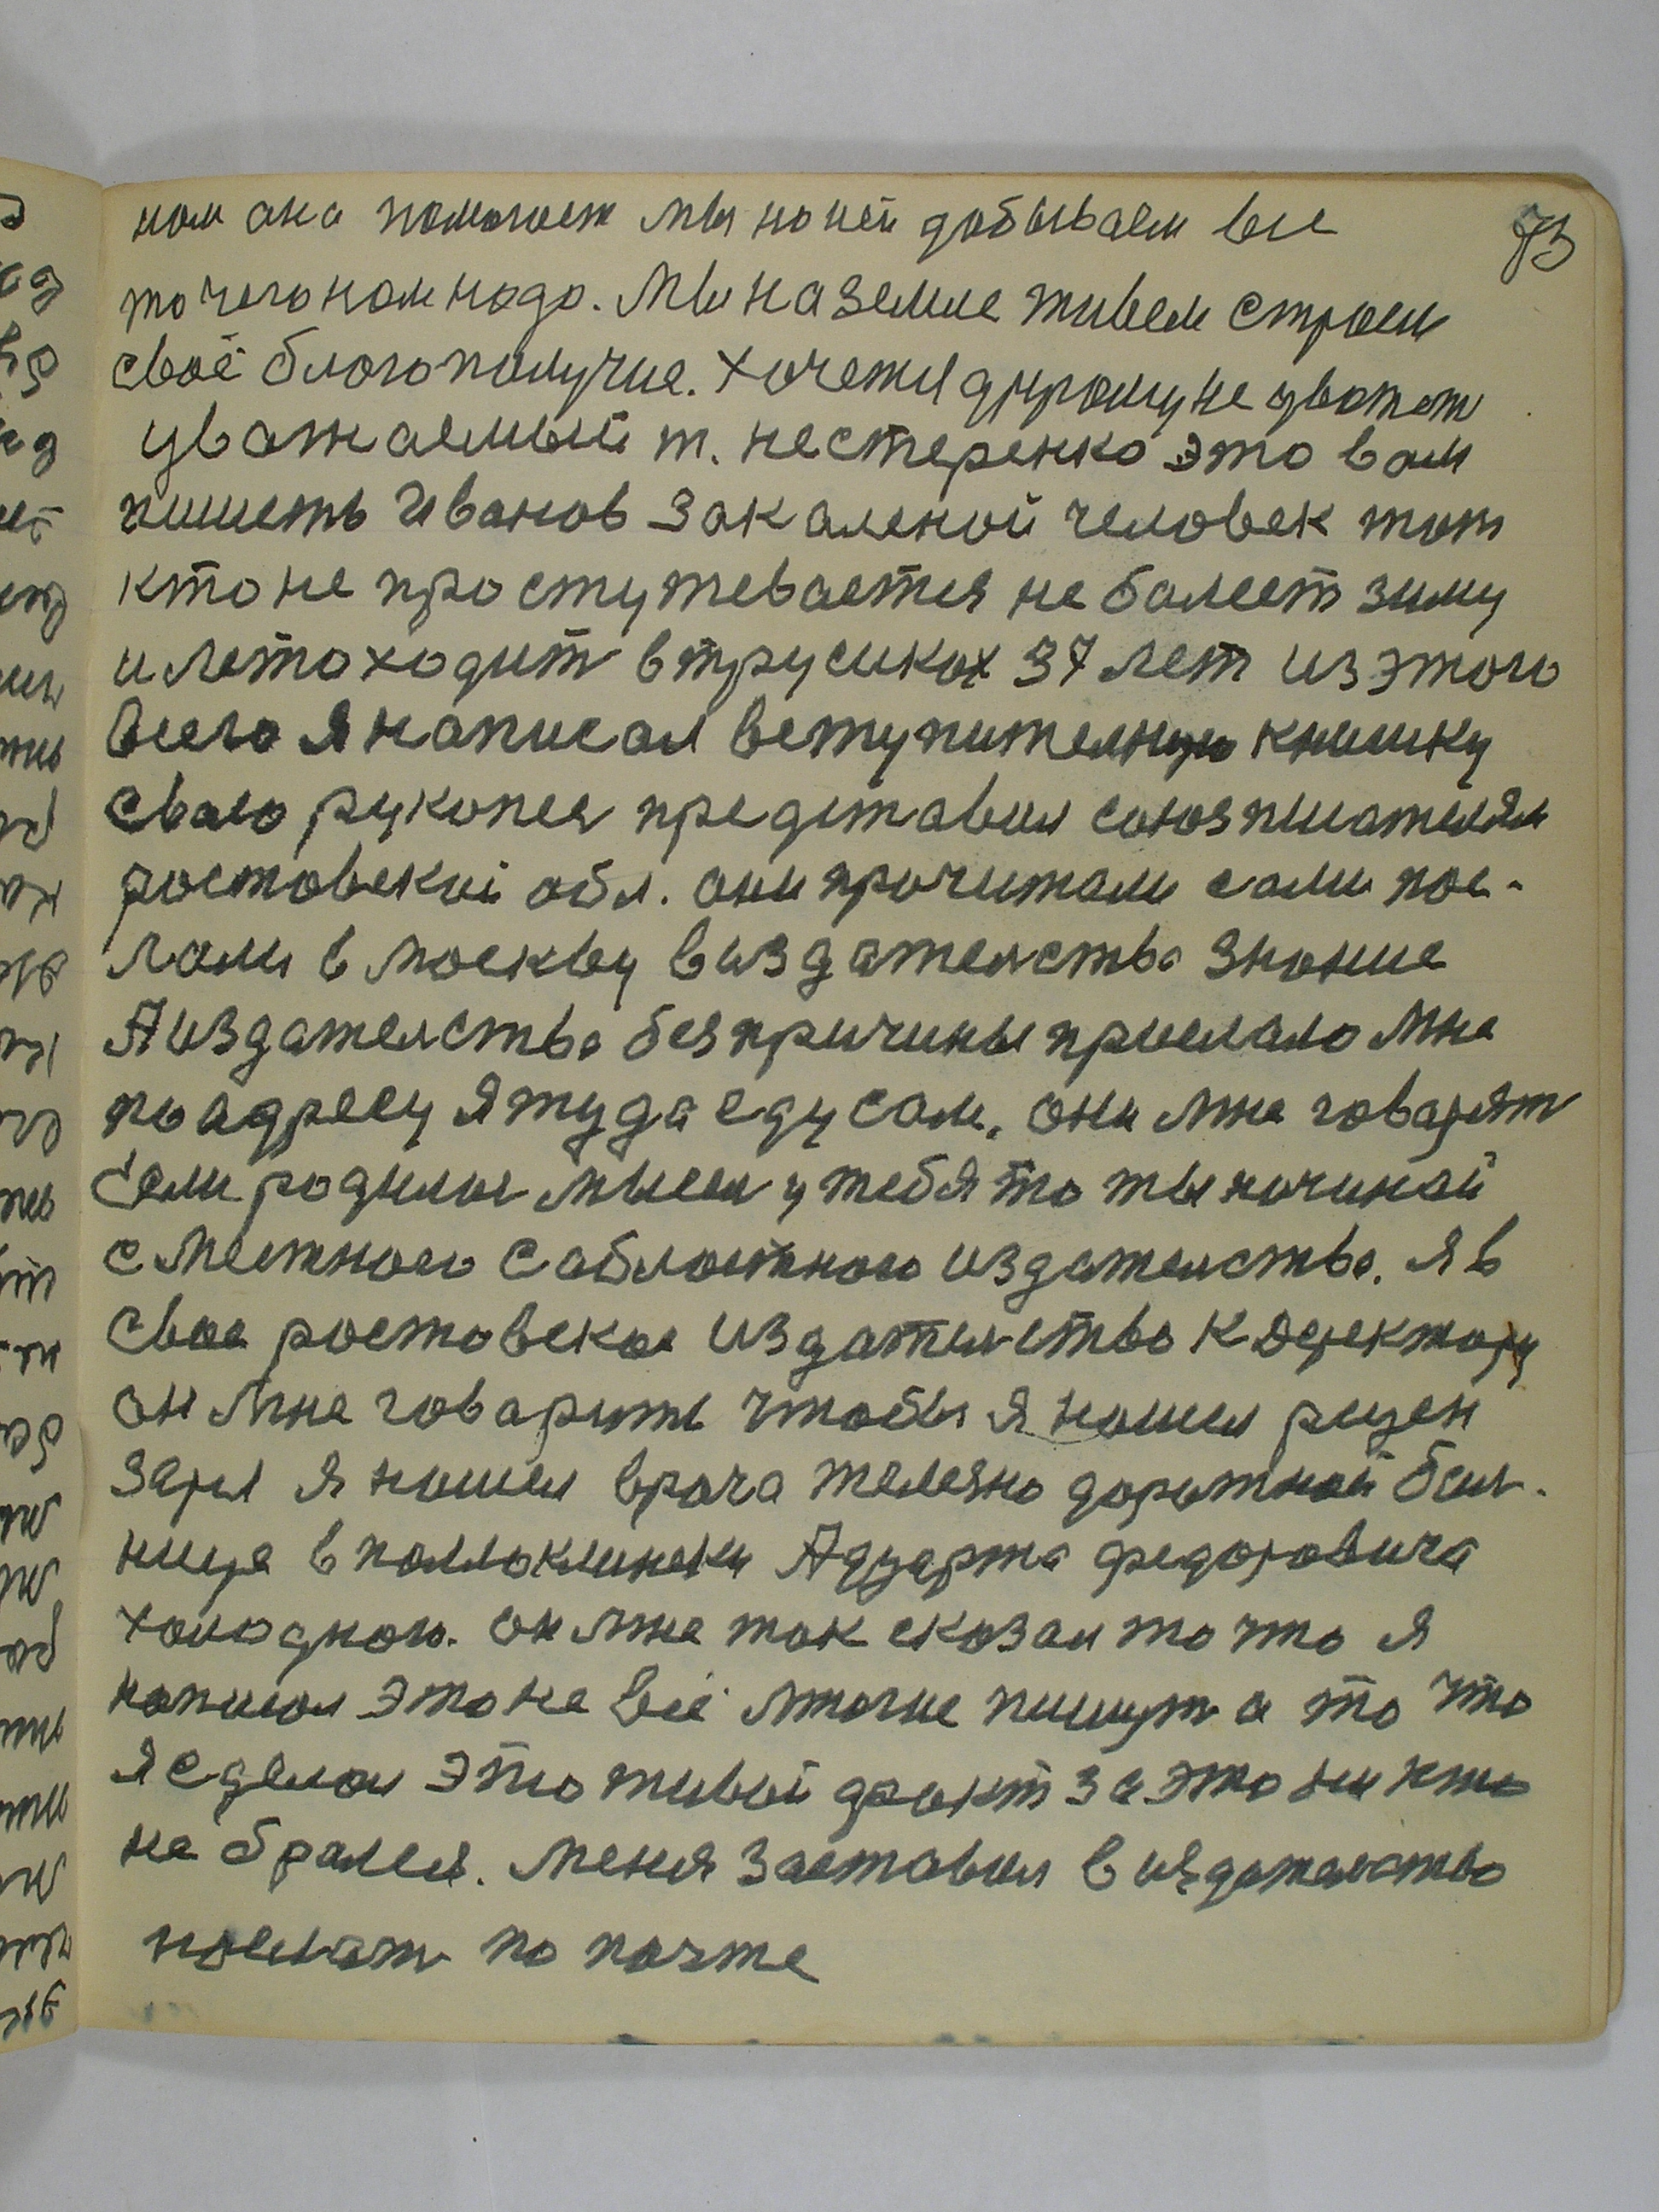 73
ном она помогает мы на ней добываем все
то чего нам надо. Мы на земле живем строем
своё благополучие. Хочется другому не уважат
уважаемый т. нестеренко это вам
пишеть Иванов Закаленой человек тот
кто не простужевается не балеет зиму
и лето ходит в трусиках 37 лет из этого
всего Я написал вступителную книжку
Сваю рукопея представил союз писателям
ростовекий обл. они прочитали сами пос-
лали в москву в издателство Знание
А издателство без причины прислало мне
по адресу Я туда еду сам. они мне говарят
Если родилос мысел у тебя то ты начинай
с местного с обласного издателства. Я в
свое ростовское издателство к деректору
он мне говарить чтобы Я нашел рецен
зеря Я нашел врача железно дорожной бол-
нице в поллоклинеки Адуарта федоровича
холодного. он мне так сказал то что Я
написал это не всё многие пишут а то что
Я сделал это живой факт за это ни кто
не брался. Меня заставил в издателство
послат по почте